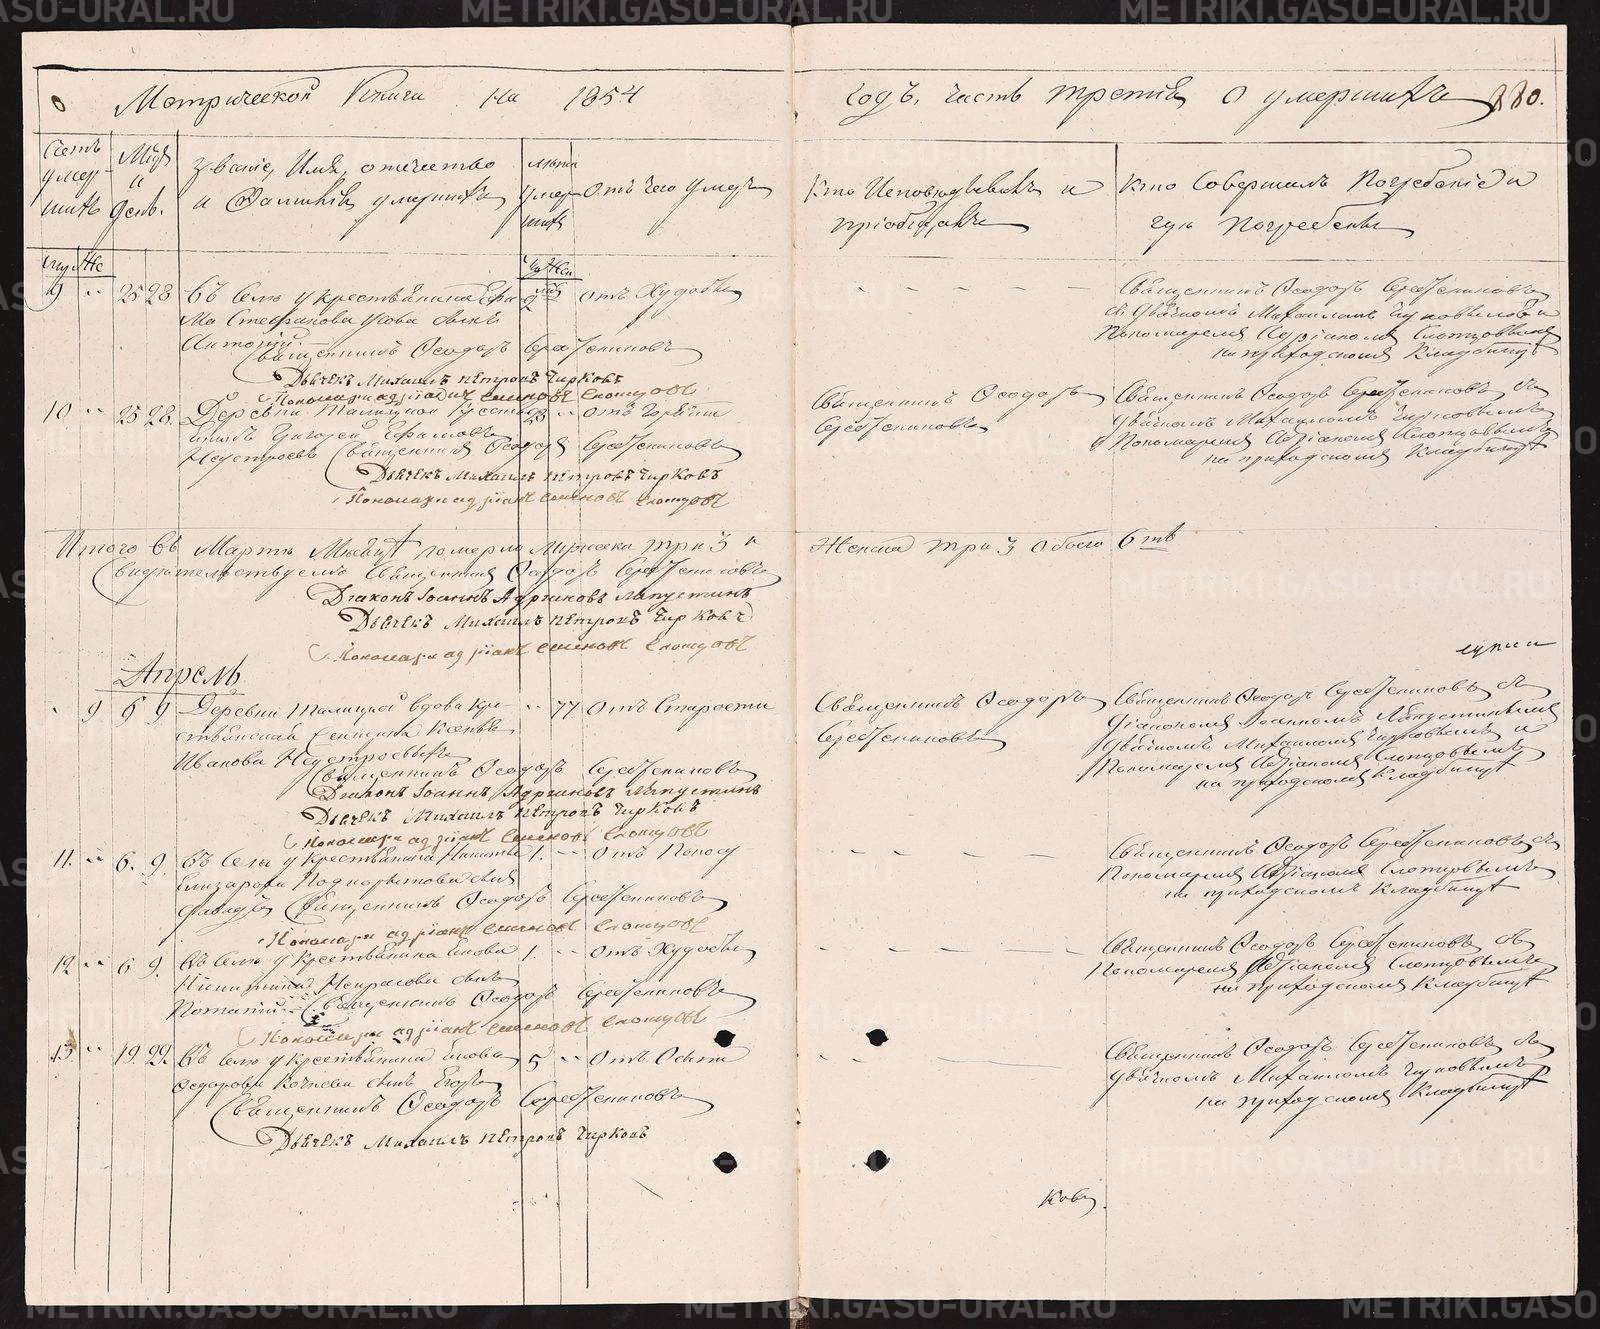 Метрической Книги на 1854
годъ, часть третія, о умершихъ 880.
Счетъ умер-шихъ
Мѣсяцъ и день.
Званіе, Имя, отчество и Фамилія умершихъ
лѣта умер-шихъ
Отъ чего умеръ
Кто Исповѣдывалъ и пріобщалъ
Кто Совершалъ Погребеніе и гдѣ Погребены
Муж Жс
Му Жен
9 " 25 28 Въ Селѣ у крестьянина Ефи-
ма Стефанова Усова сынъ
Антоній
отъ Худобы
Священникъ Ѳеодоръ Серебрениковъ
Дьячекъ Михаилъ Петровъ Чирковъ
Пономарь Адріанъ Семеновъ Слопцовъ
Священникъ Ѳеодоръ Серебрениковъ
съ Дьячкомъ Михаиломъ Чирковымъ и
Пономаремъ Адріаномъ Слопцовымъ
на приходскомъ Кладбищѣ
10 " 25 28. Деревни Талицкой Крестья-
нинъ Григорей Ефимовъ
Неустроевъ
28 " отъ Горячки
Священникъ Ѳеодоръ Серебрениковъ
Дьячекъ Михаилъ Петровъ Чирковъ
Пономарь Адріанъ Семеновъ Слопцовъ
Священникъ Ѳеодоръ
Серебрениковъ
Священникъ Ѳеодоръ Серебрениковъ съ
Дьячкомъ Михаиломъ Чирковымъ
и Пономаремъ Адріаномъ Слопцовымъ
на приходскомъ Кладбищѣ
Итого въ Мартѣ Мѣсяцѣ померло Мужеска три 3 и
Женска три 3 Обоего 6ть
Свидѣтельствуемъ Священникъ Ѳеодоръ Серебрениковъ
Діаконъ Іоаннъ Адріановъ Лапустинъ
Дьячекъ Михаилъ Петровъ Чирковъ
Пономарь Адріанъ Семеновъ Слопцовъ
Апрель
" 9 6 9 Деревни Талицкой вдова кре-
стьянская женщина Ксенья
Иванова Неустроевыхъ
" 77 Отъ Старости
Священникъ Ѳеодоръ Серебрениковъ
Діаконъ Іоаннъ Адріановъ Лапустинъ
Дьячекъ Михаилъ Петровъ Чирковъ
Пономарь Адріанъ Семеновъ Слопцовъ
Священникъ Ѳеодоръ
Серебрениковъ
Священникъ Ѳеодоръ Серебрениковъ съ
Діакономъ Іоанномъ Лапустинымъ
Дьячкомъ Михаиломъ Чирковымъ и
Пономаремъ Адріаномъ Слопцовымъ
на приходскомъ Кладбищѣ
11. " 6. 9. Въ Селѣ у Крестьянина Никиты
Елизарова Подкорытова сынъ
1. " Отъ Поносу
Священникъ Ѳеодоръ Серебрениковъ
Пономарь Адріанъ Семеновъ Слопцовъ
Священникъ Ѳеодоръ Серебрениковъ съ
Пономаремъ Адріаномъ Слопцовымъ
на приходскомъ Кладбищѣ
12 " 6 9. Въ Селѣ у Крестьянина
Некрасова сынъ
1. " Отъ Худобы
Священникъ Ѳеодоръ Серебрениковъ
Пономарь Адріанъ Семеновъ Слопцовъ
Священникъ Ѳеодоръ Серебрениковъ съ
Пономаремъ Адріаномъ Слопцовымъ
на приходскомъ Кладбищѣ
13. " 19. 22. Въ Селѣ у Крестьянина
сынъ Егоръ
5 " Отъ Оспы
Священникъ Ѳеодоръ Серебрениковъ
Дьячекъ Михаилъ Петровъ Чирковъ
Священникъ Ѳеодоръ Серебрениковъ съ
Дьячкомъ Михаиломъ Чирковымъ
на приходскомъ Кладбищѣ
METRIKI.GASO-URAL.RU